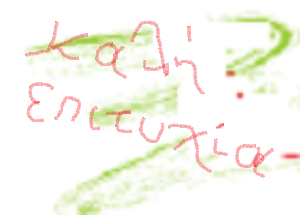 καλή
επιτυχία